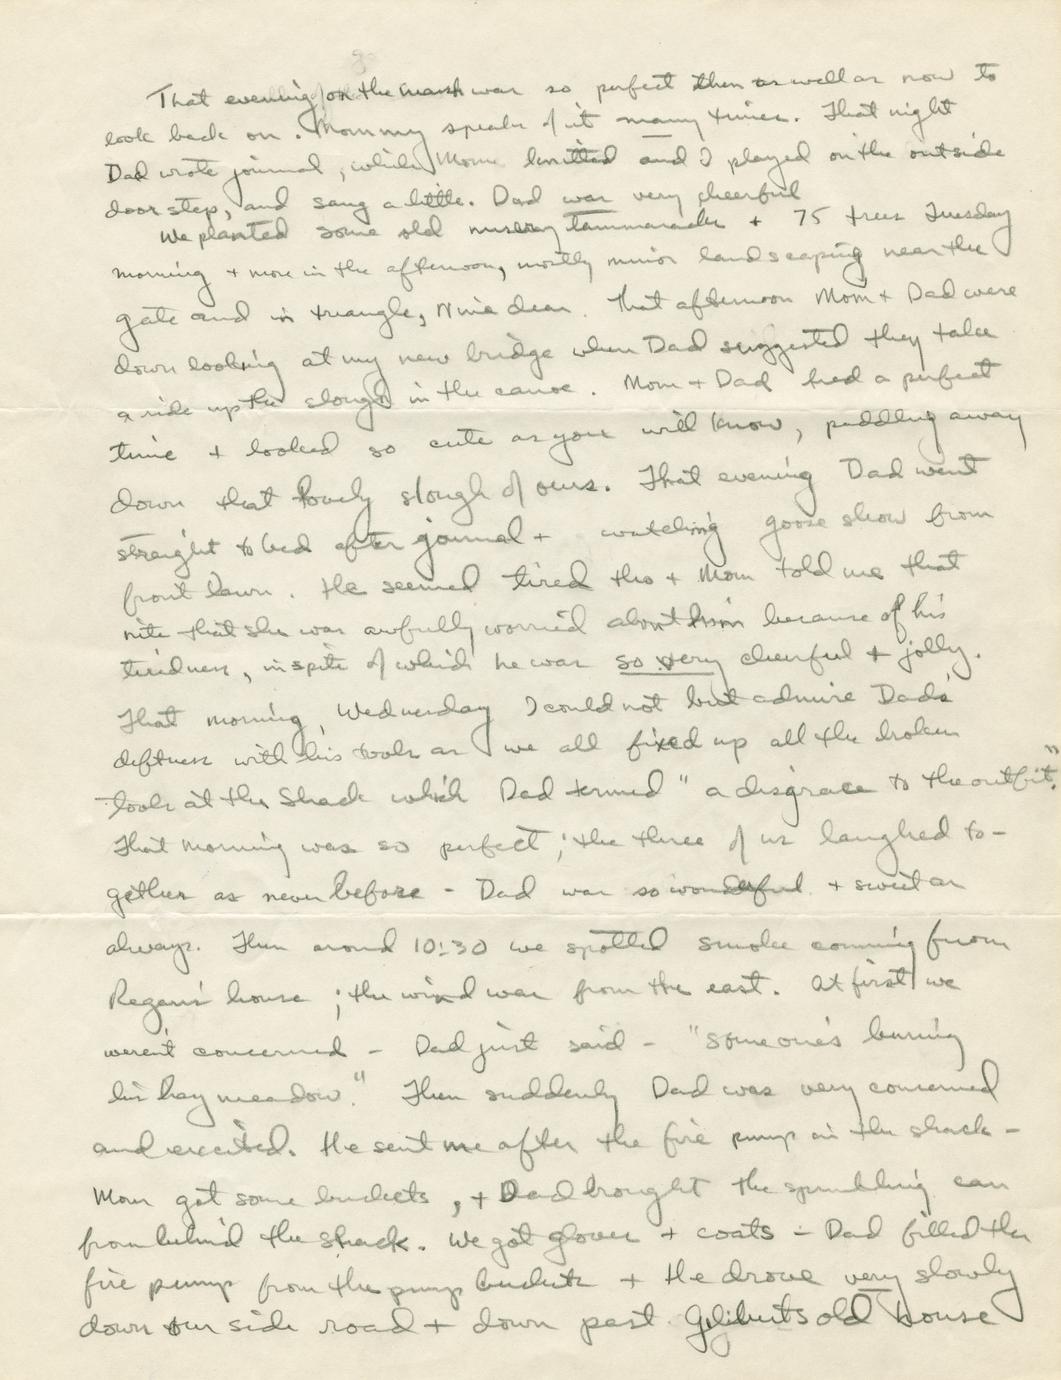 That evening on the marsh was so perfect then as well as now to
look back on. Mommy speaks of it many times. That night
Dad wrote journal, while Mom knitted and I played on the outside
door step, and sang a little. Dad was very cheerful
We planted some old nursery tammaracks + 75 trees Tuesday
morning + more in the afternoon, mostly minor landscaping near the
gate and in triangle, Nina dear. That afternoon Mom + Dad were
down looking at my new bridge when Dad suggested they take
a ride up the slough in the canoe. Mom + Dad had a perfect
time + looked so cute as you will know, paddling away
down that lovely slough of ours. That evening Dad went
straight to bed after journal + watching goose show from
front lawn. He seemed tired tho + Mom told me that
nite that she was awfully worried about him because of his
tiredness, in spite of which he was so very cheerful + jolly.
That morning, Wednesday I could not but admire Dad's
deftness with his tools as we all fixed up all the broken
tools at the Shack which Dad termed "a disgrace to the outfit."
That morning was so perfect; the three of us laughed to-
gether as never before - Dad was so wonderful + sweet as
always. Then around 10:30 we spotted smoke comming from
Regan's house; the wind was from the east. At first we
weren't concerned - Dad just said - "Someone's burning
his hay meadow." Then suddenly Dad was very concerned
and excited. He sent me after the fire pump in the shack -
Mom got some buckets, + Dad brought the sprinkling can
from behind the shack. We got gloves + coats - Dad filled the
fire pump from the pump buckets + He drove very slowly
down our side road + down past Gilberts old house